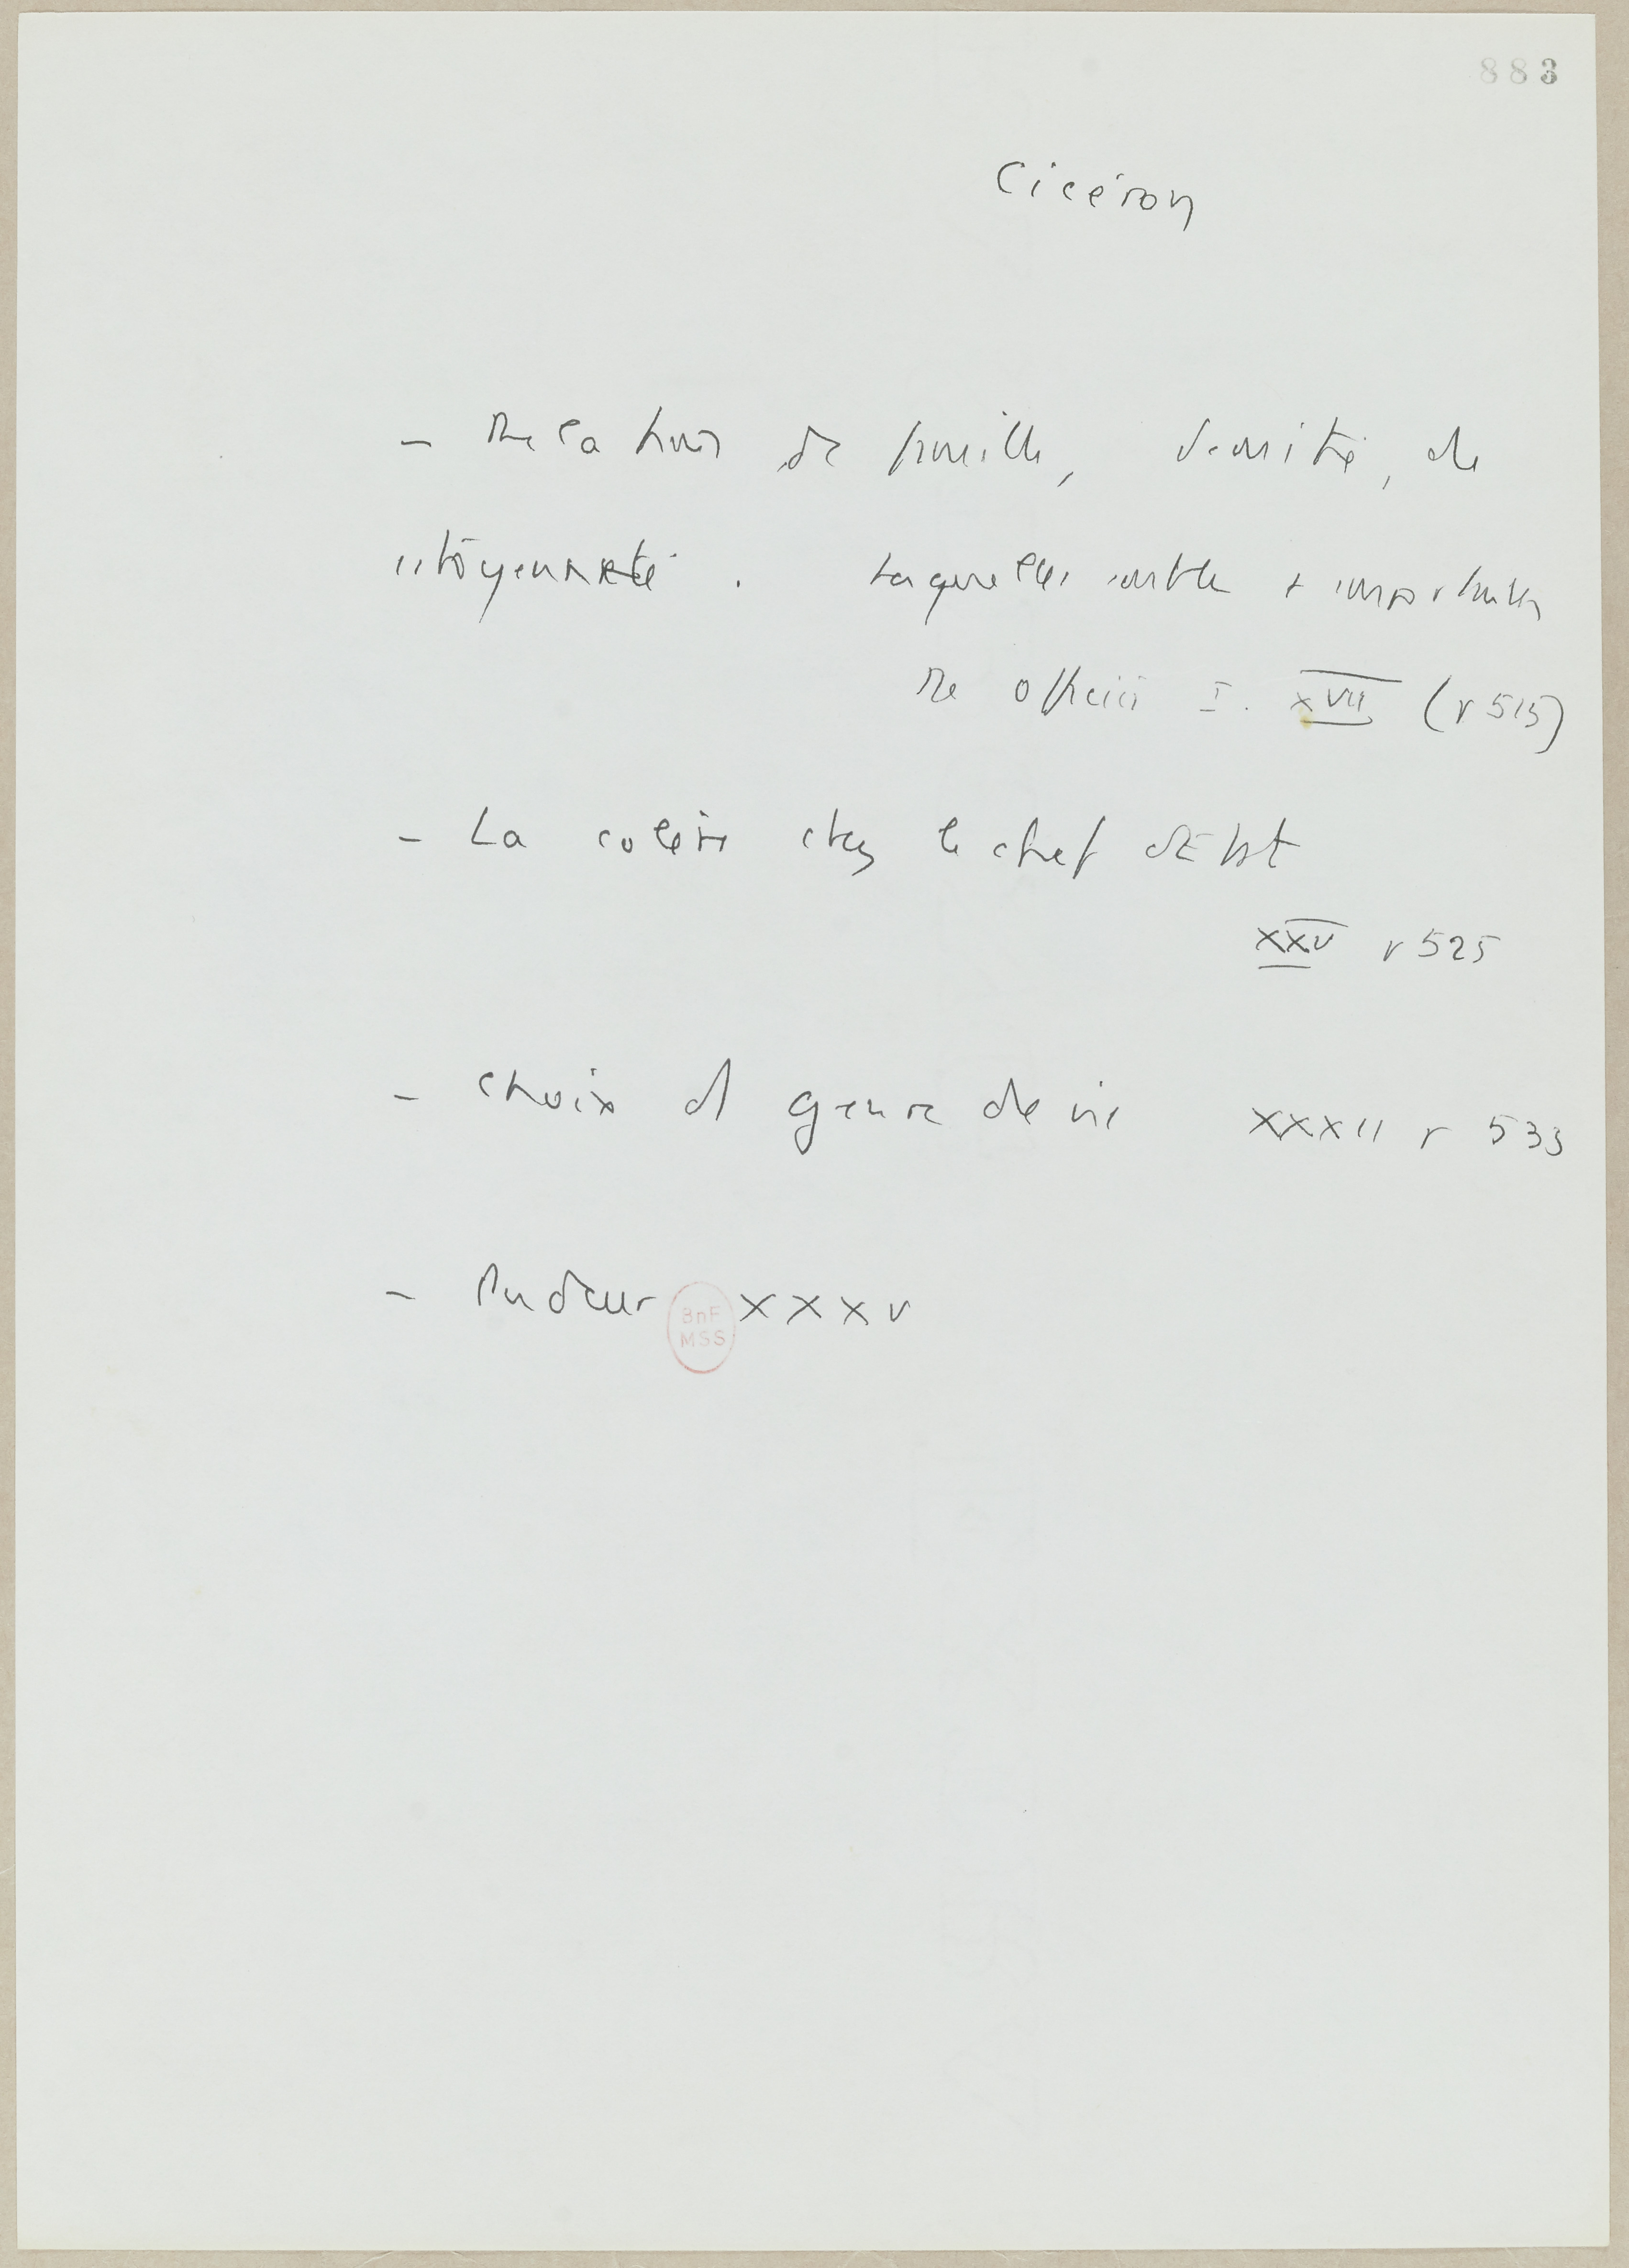 883
Cicéron
- Relations de famille, d'amitié, de
citoyenneté. Laquelle est + importante
De officiis I. XVII (p 515)
- La colère chez le chef d'Etat
XXV p 525
- choix d genre de vie XXXII p 533
- Pudeur XXXV
BnF
MSS